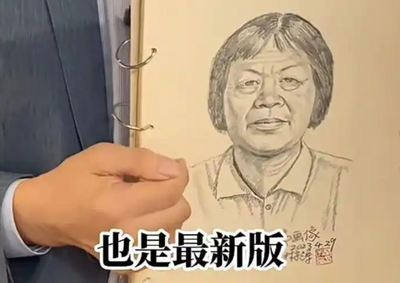 画像
2023.4.29
也是最新版